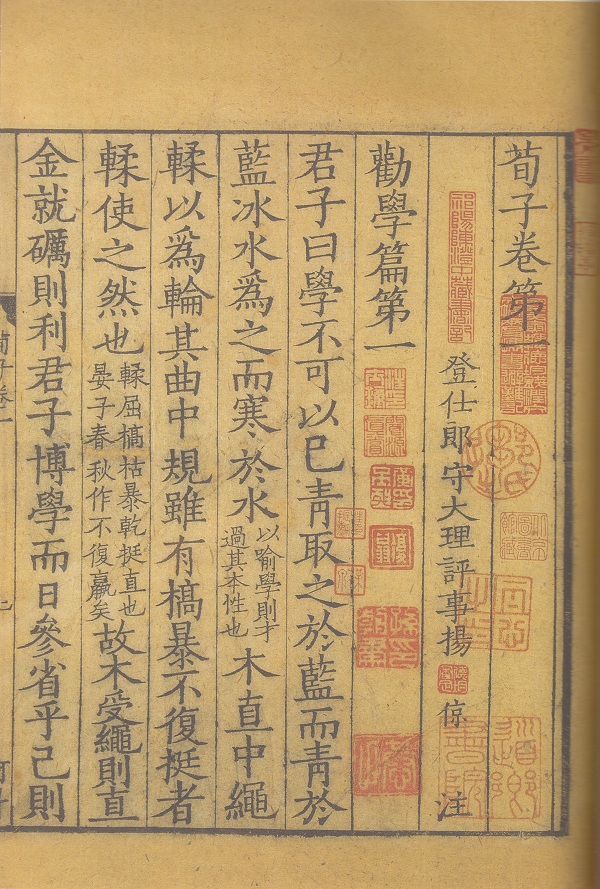 荀子卷第一
登仕郎守大理評事揚倞注
祁陽陳澄中藏書記
勸學篇第一
君子曰學不可以巳青取之於藍而青於
藍冰水爲之而寒於水
以喻學則才
過其本性也
木直中繩
輮以爲輪其曲中規雖有槁暴不復挺者
輮使之然也
輮屈槁枯暴乾挺直也
晏子春秋作不復羸矣
故木受繩則直
金就礪則利君子博學而日參省乎己則